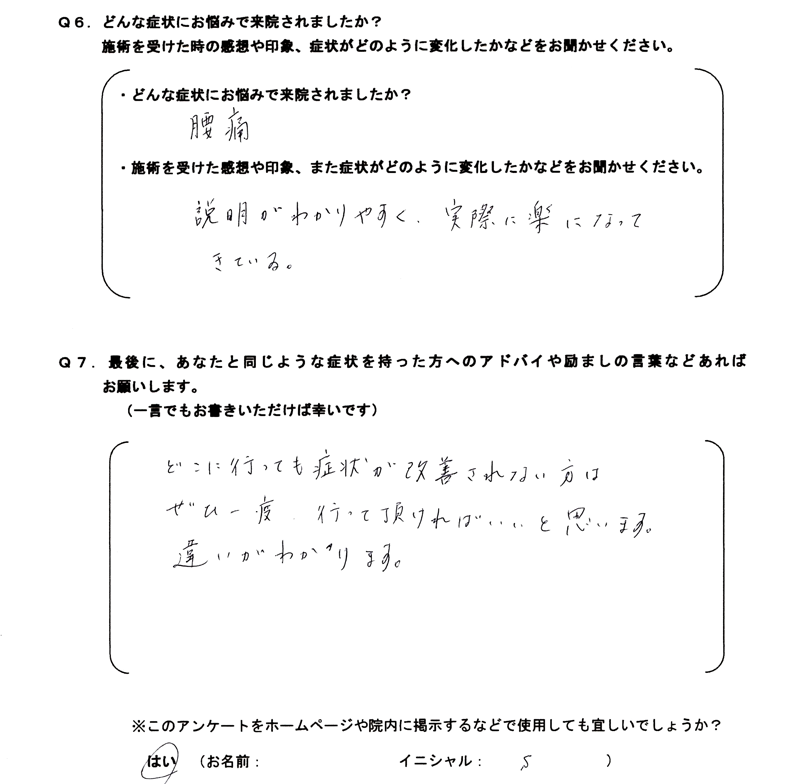 Q6. どんな症状にお悩みで来院されましたか？
施術を受けた時の感想や印象、症状がどのように変化したかなどをお聞かせください。
・どんな症状にお悩みで来院されましたか？
腰痛
・施術を受けた感想や印象、また症状がどのように変化したかなどをお聞かせください。
説明がわかりやすく、実際に楽になって
きている。
Q7. 最後に、あなたと同じような症状を持った方へのアドバイや励ましの言葉などあれば
お願いします。
（一言でもお書きいただけば幸いです）
どこに行っても症状が改善されない方は
ぜひ一度、行って頂ければいいと思います。
違いがわかります。
※このアンケートをホームページや院内に掲示するなどで使用しても宜しいでしょうか？
はい （お名前： イニシャル： S ）